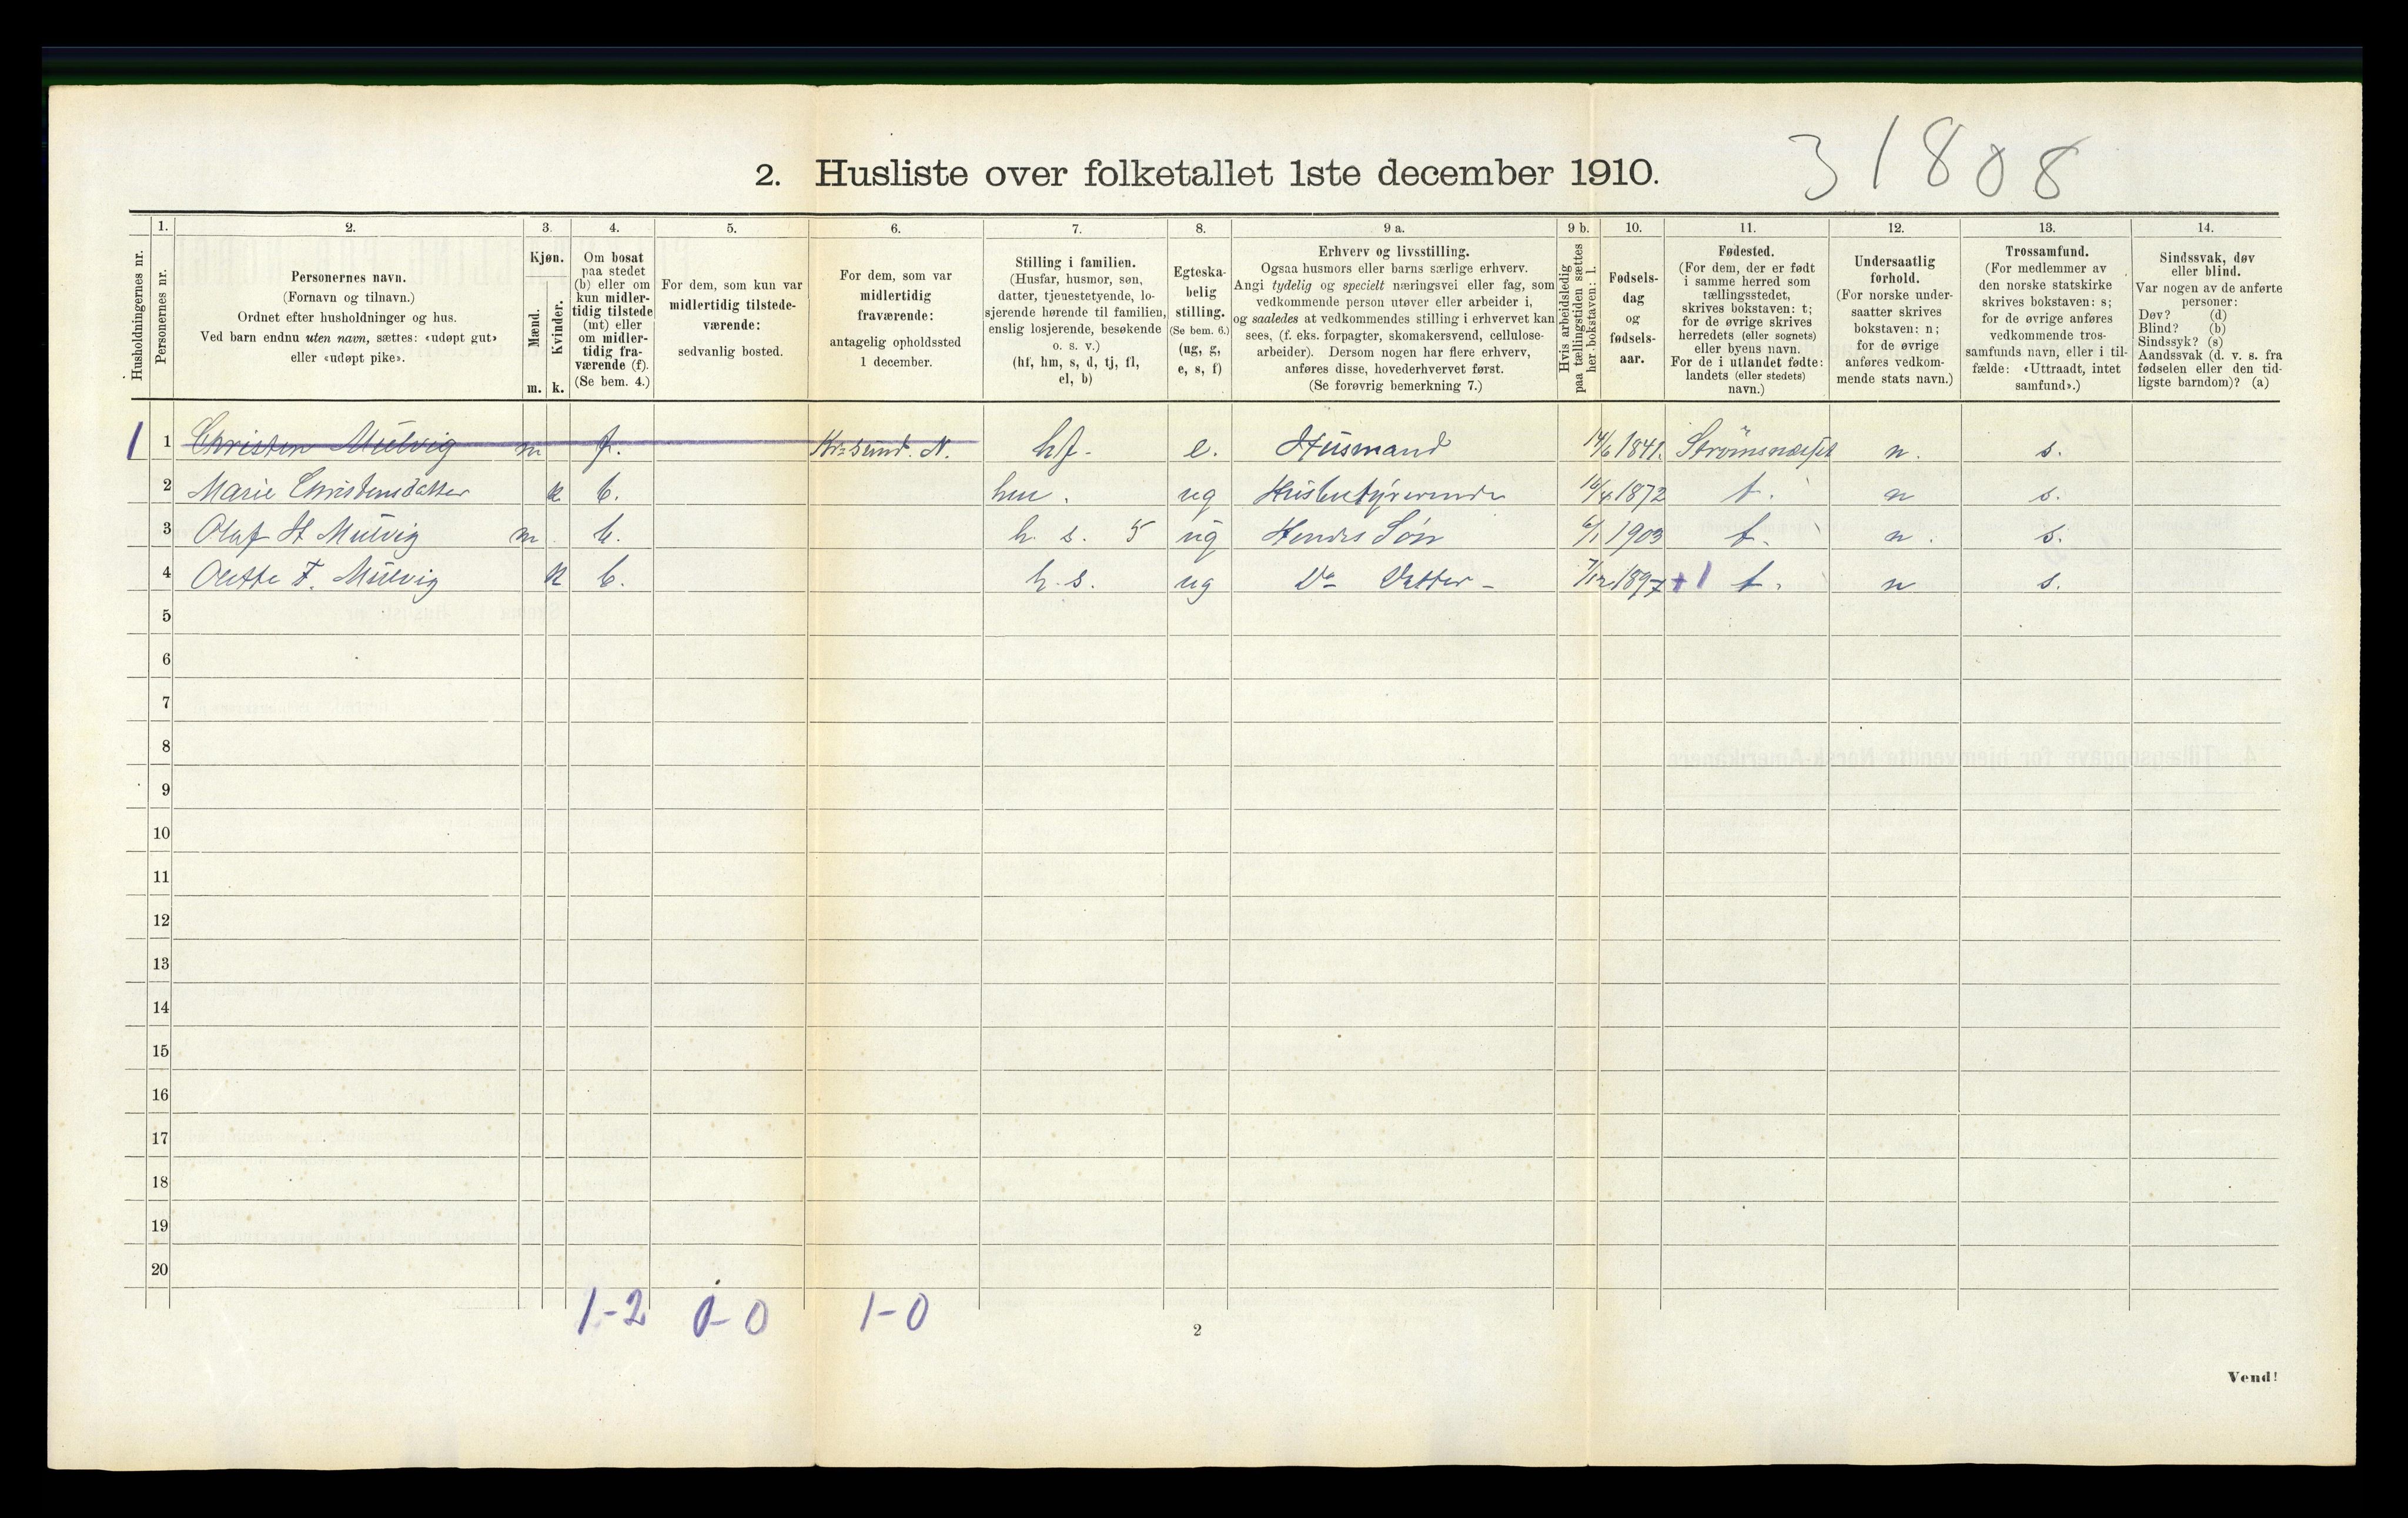 31808
2. Husliste over folketallet 1ste december 1910.
Husholdningernes nr.
1.
Personernes nr.
2.
Personernes navn.
(Fornavn og tilnavn.)
Ordnet efter husholdninger og hus.
Ved barn endnu uten navn, sættes: «udøpt gut»
eller «udøpt pike».
3.
Kjøn.
Mænd.
m.
Kvinder.
k.
4.
Om bosat
paa stedet
(b) eller om
kun midler-
tidig tilstede
(mt) eller
om midler-
tidig fra-
værende (f).
(Se bem. 4.)
5.
For dem, som kun var
midlertidig tilstede-
værende:
sedvanlig bosted.
6.
For dem, som var
midlertidig
fraværende:
antagelig opholdssted
1 december.
7.
Stilling i familien.
(Husfar, husmor, søn,
datter, tjenestetyende, lo-
sjerende hørende til familien,
enslig losjerende, besøkende
o. s. v.)
(hf, hm, s, d, tj, fl,
el, b)
8.
Egteska-
belig
stilling.
(Se bem. 6.)
(ug, g,
e, s, f)
9 a.
Erhverv og livsstilling.
Ogsaa husmors eller barns særlige erhverv.
Angi tydelig og specielt næringsvei eller fag, som
vedkommende person utøver eller arbeider i,
og saaledes at vedkommendes stilling i erhvervet kan
sees, (f. eks. forpagter, skomakersvend, cellulose-
arbeider). Dersom nogen har flere erhverv,
anføres disse, hovederhvervet først.
(Se forøvrig bemerkning 7.)
9 b.
Hvis arbeidsledig
paa tællingstiden sættes
her bokstaven: l.
10.
Fødsels-
dag
og
fødsels-
aar.
11.
Fødested.
(For dem, der er født
i samme herred som
tællingsstedet,
skrives bokstaven: t;
for de øvrige skrives
herredets (eller sognets)
eller byens navn.
For de i utlandet fødte:
landets (eller stedets)
navn.)
12.
Undersaatlig
forhold.
(For norske under-
saatter skrives
bokstaven: n;
for de øvrige
anføres vedkom-
mende stats navn.)
13.
Trossamfund.
(For medlemmer av
den norske statskirke
skrives bokstaven: s;
for de øvrige anføres
vedkommende tros-
samfunds navn, eller i til-
fælde: «Uttraadt, intet
samfund».)
14.
Sindssvak, døv
eller blind.
Var nogen av de anførte
personer:
Døv? (d)
Blind? (b)
Sindssyk? (s)
Aandssvak (d. v. s. fra
fødselen eller den tid-
ligste barndom)? (a)
1 1 Christen Mülvig m f. Kr=sund. N. hf- e. Husmand 14/6 1841. Strömsnæset n. s.
2 Marie Christensdatter k b. hm. ug 10/4 1872 t. n s.
3 Olaf St Mülvig m b. h. s. 5 ug Hendes Søn 6/1 1903 t. n. s.
4 Olette F. Mülvig k b. h. s. ug Do Datter - 7/12 1897 +1 t. n s.
5
6
7
8
9
10
11
12
13
14
15
16
17
18
19
20
1-2 0-0 1-0
2
Vend!